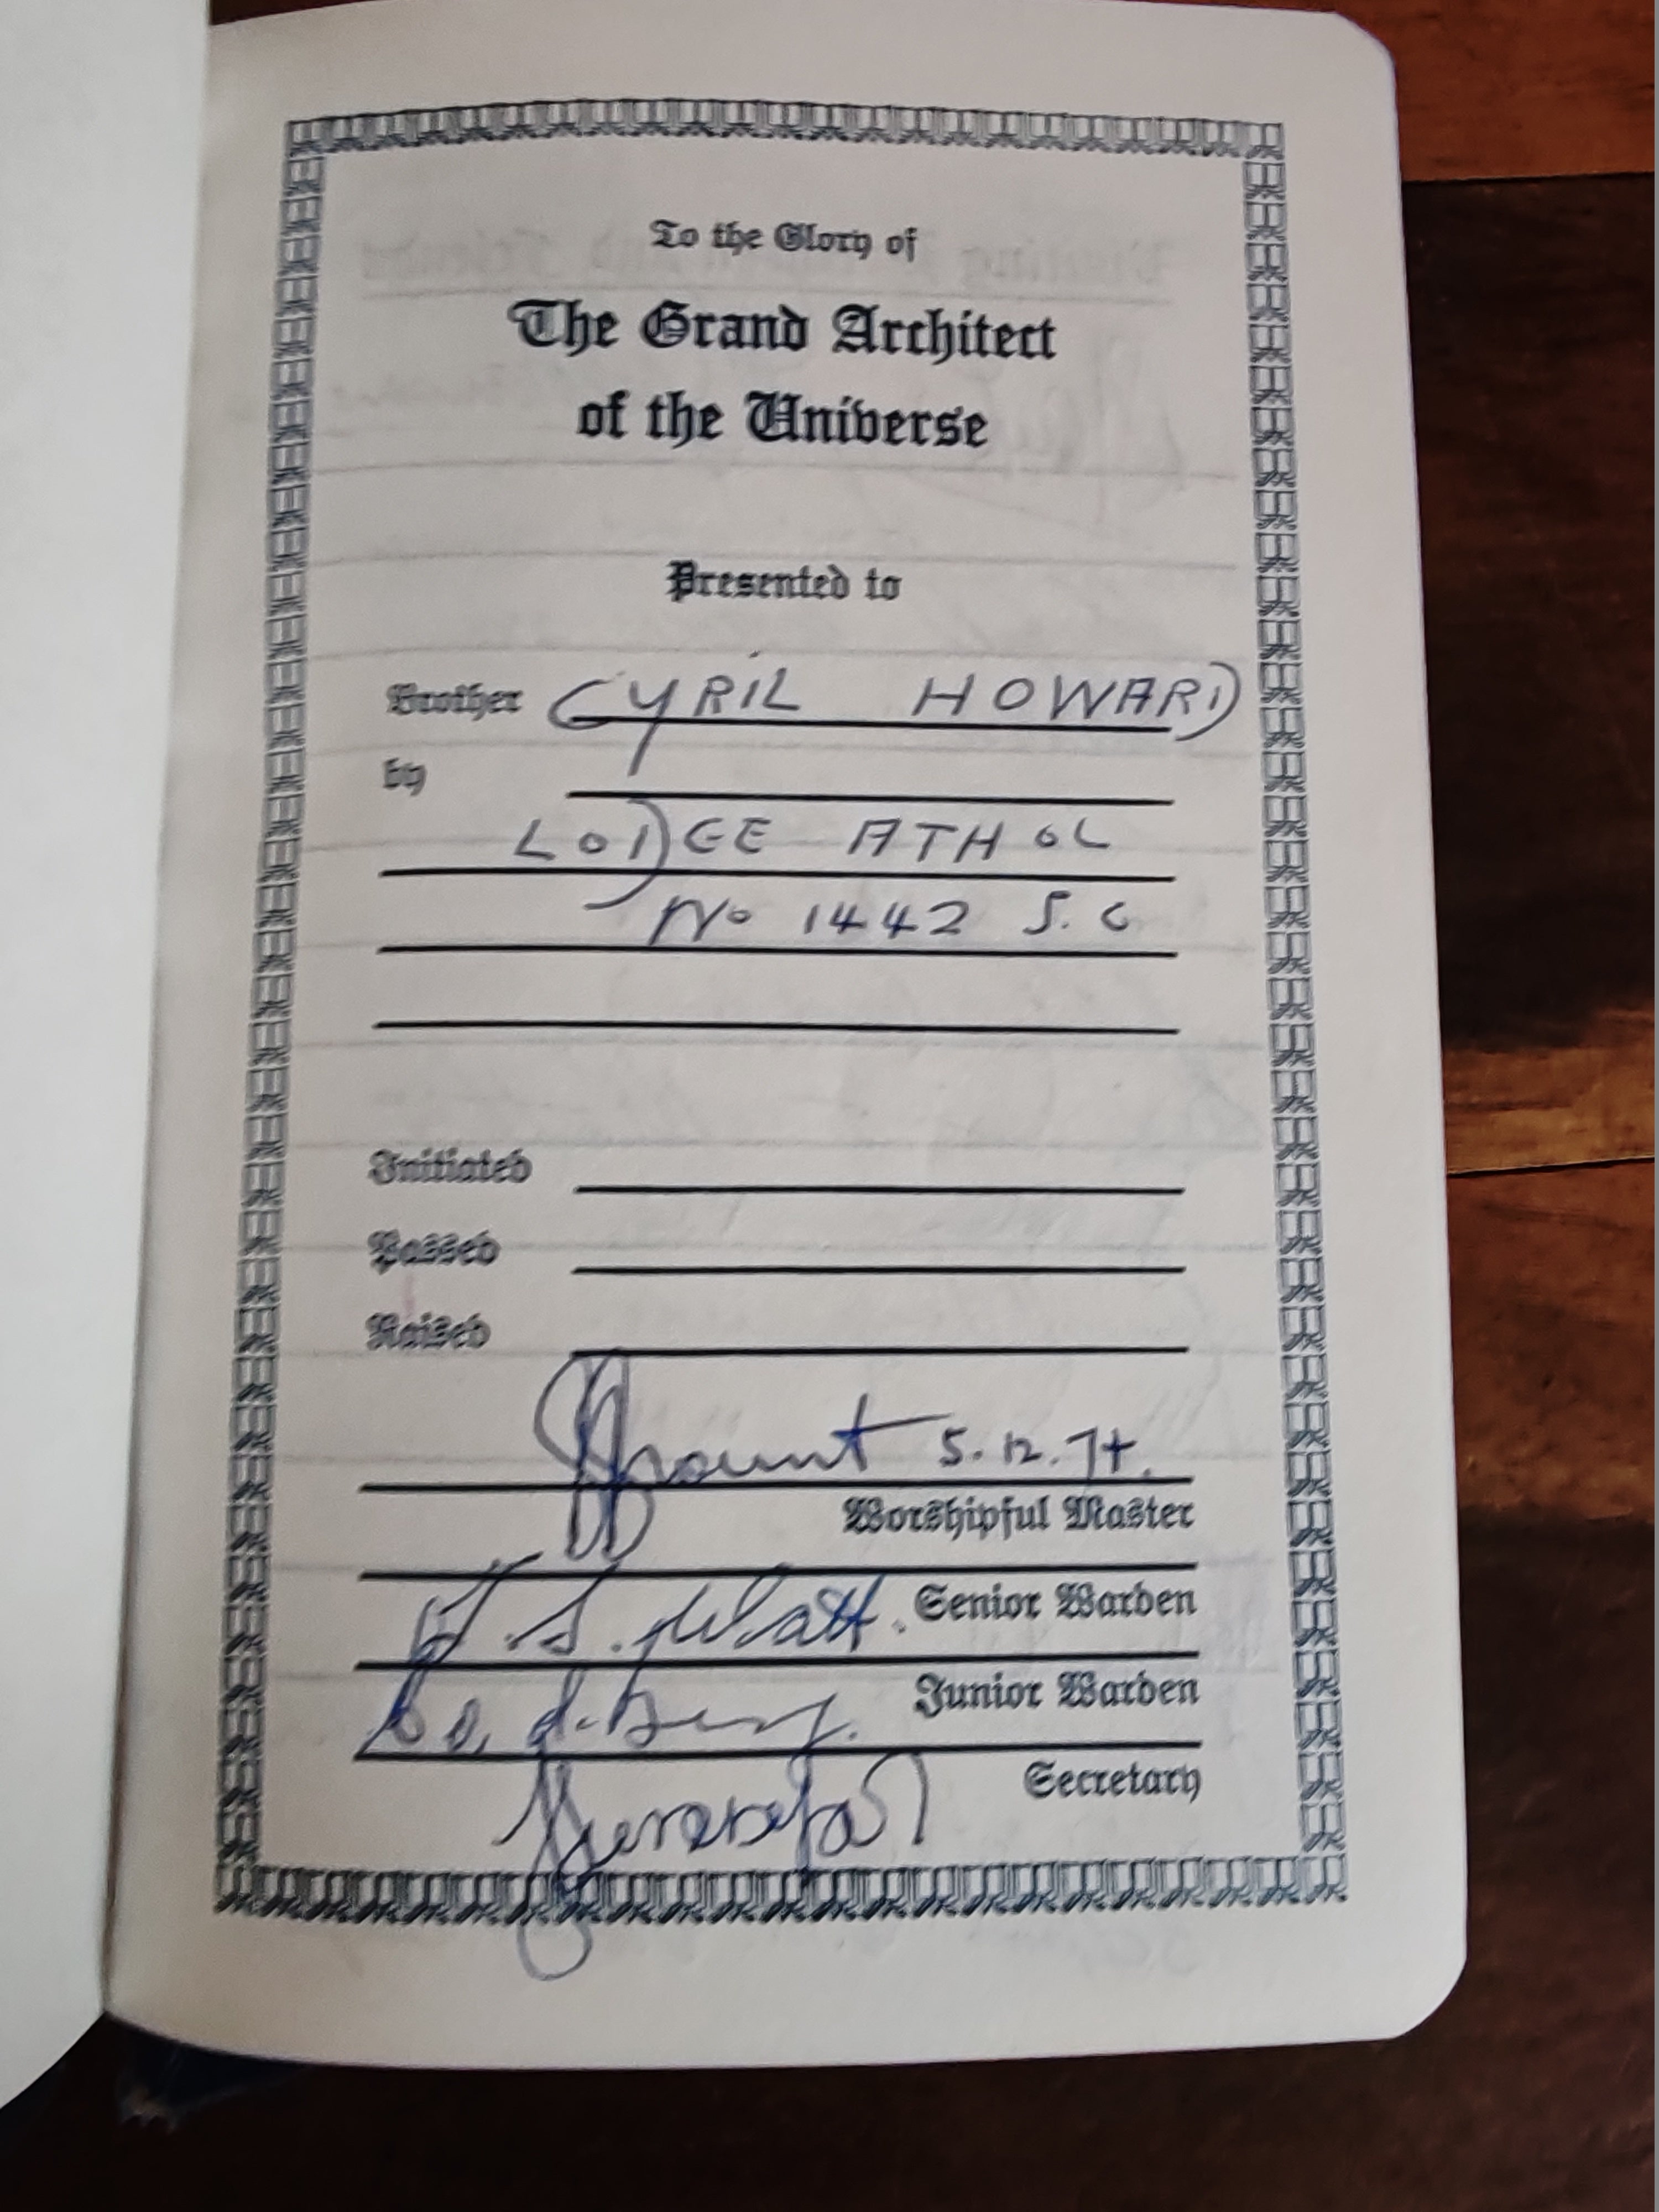 To the Glory of
The Grand Architect
of the Universe
Presented to
Brother CYRIL HOWARD
by
LODGE ATHOL
No 1442 S.C
Initiated
Passed
Raised
5.12.74.
Worshipful Master
Senior Warden
J. S. Watt.
Junior Warden
Secretary